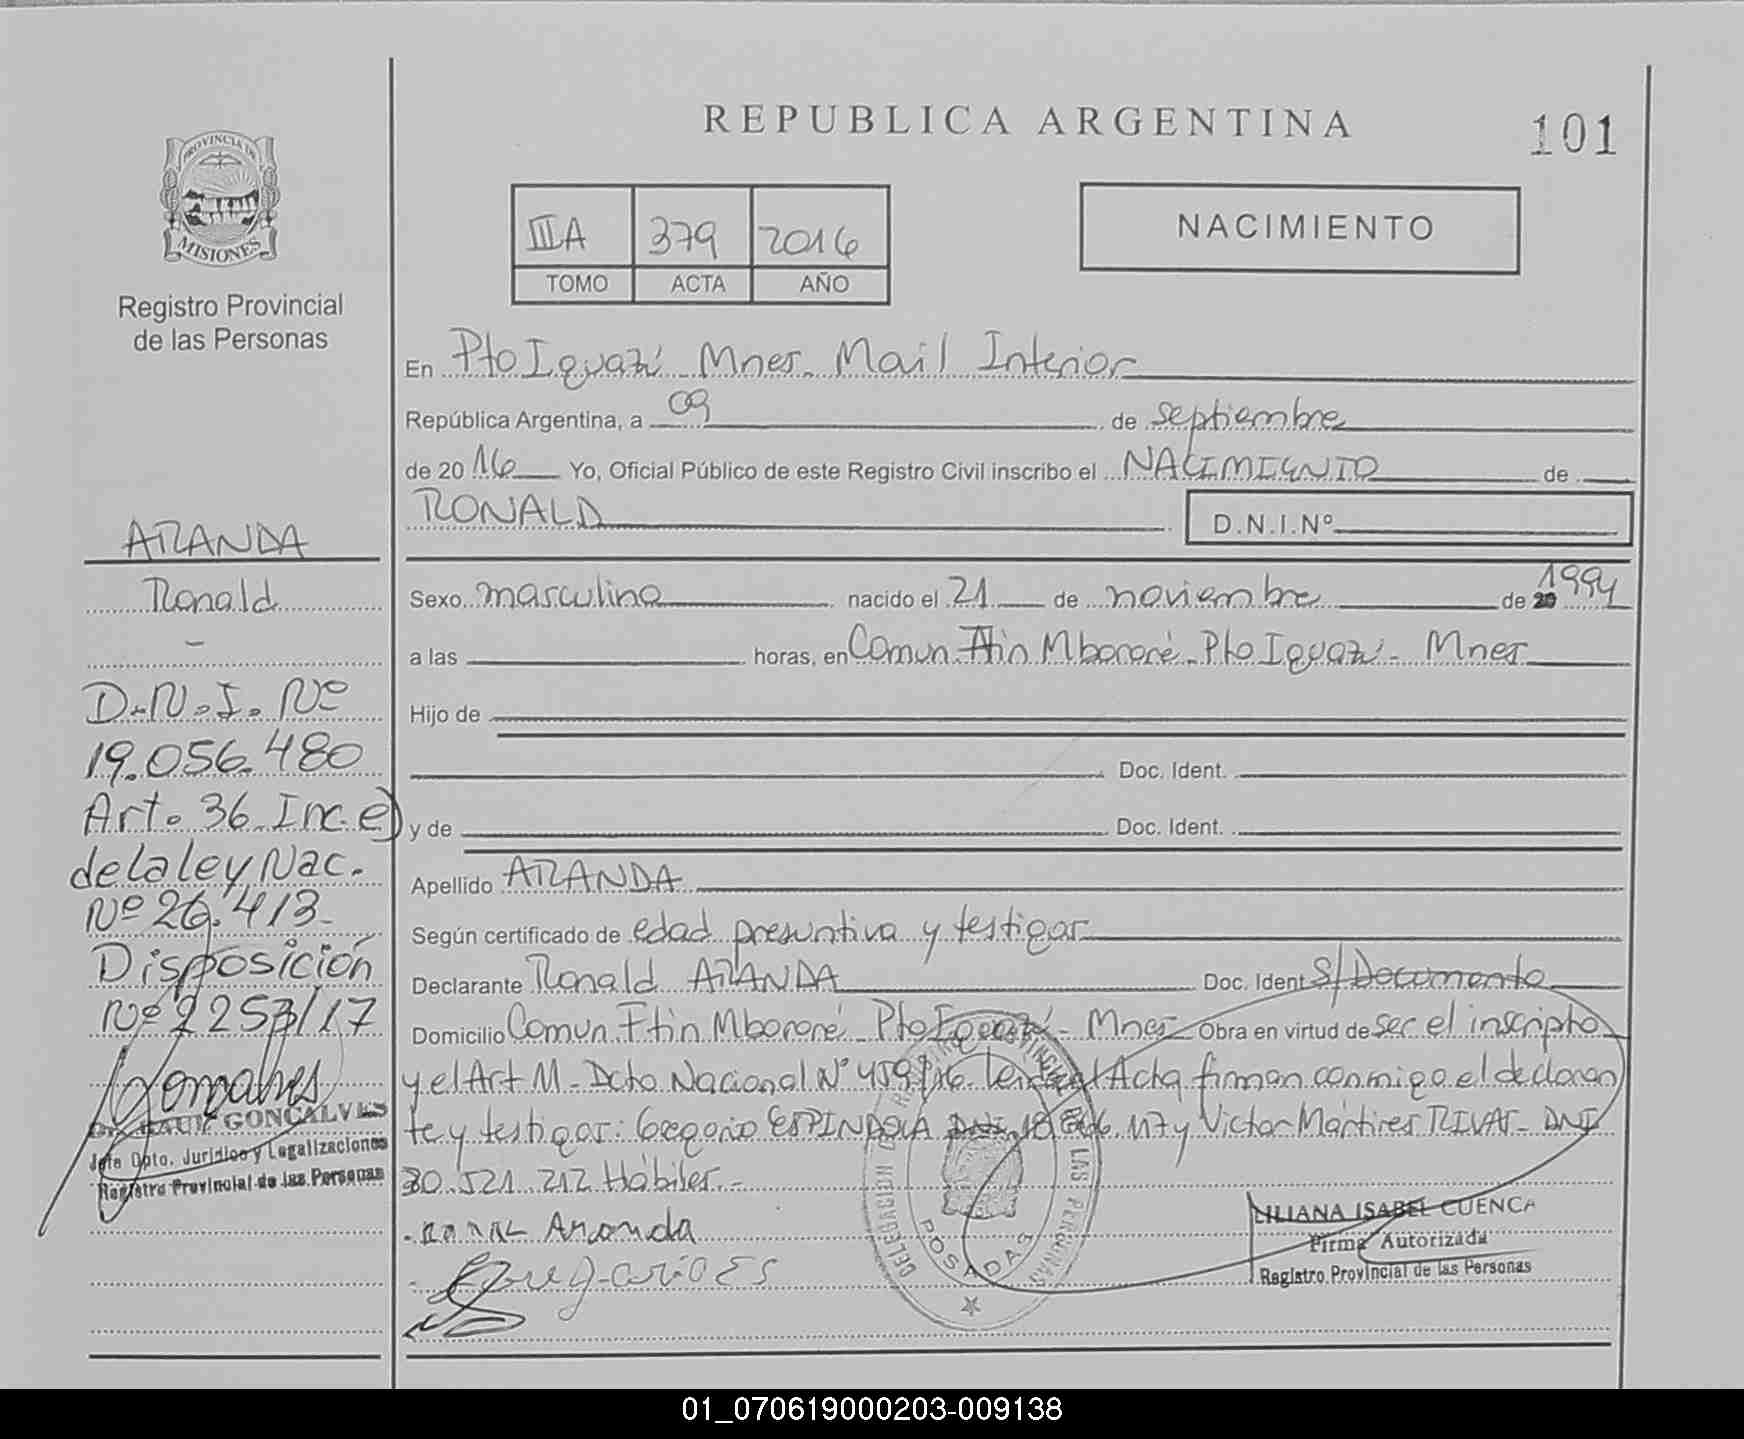 REPUBLICA ARGENTINA
101
PROVINCIA DE
MISIONES
Registro Provincial
de las Personas
IIIA 379 2016
TOMO ACTA AÑO
NACIMIENTO
En Pto Iguazú - Mnes. Mail Interior
República Argentina, a 09 de septiembre
de 2016 Yo, Oficial Público de este Registro Civil inscribo el NACIMIENTO de
RONALD
D.N.I.Nº
Sexo masculino nacido el 21 de noviembre de 20 1994
a las horas, en Comun. Ftin Mbororé - Pto Iguazú - Mnes
Hijo de
Doc. Ident.
y de Doc. Ident.
Apellido ARANDA
Según certificado de edad presuntiva y testigos
Declarante Ronald ARANDA Doc. Ident S/Documento
Domicilio Comun. Ftin Mbororé - Pto Iguazú - Mnes Obra en virtud de ser el inscripto
y el Art 11 - Dcto Nacional Nº 459/16. Acta firman conmigo el declaran
te y testigos: Gregorio ESPINDOLA DNI 117 y Victor Mártires RIVAS - DNI
30.521.212 Hábiles.-
Aranda
LILIANA ISABEL CUENCA
Firma Autorizada
Registro Provincial de las Personas
DELEGACION
LAS PERSONAS
POSADAS
ARANDA
Ronald
-
D.N.I. Nº
19.056.480
Art. 36 Inc. e)
de la ley Nac.
Nº 26.413-
Disposición
Nº 2253/17
GONCALVES
Jefe Dpto. Jurídico y Legalizaciones
Registro Provincial de las Personas
01_070619000203-009138